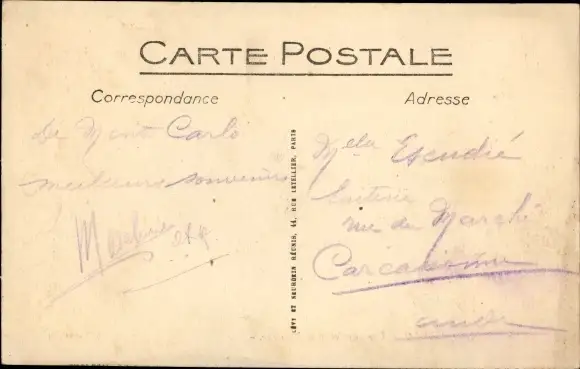 CARTE POSTALE
Correspondance
Adresse
De Mont Carlo
meilleurs souvenirs
LÉVY ET NEURDEIN RÉUNIS, 44, RUE LETELLIER, PARIS
Escudié
rue du Marché
Carcassonne
Aude